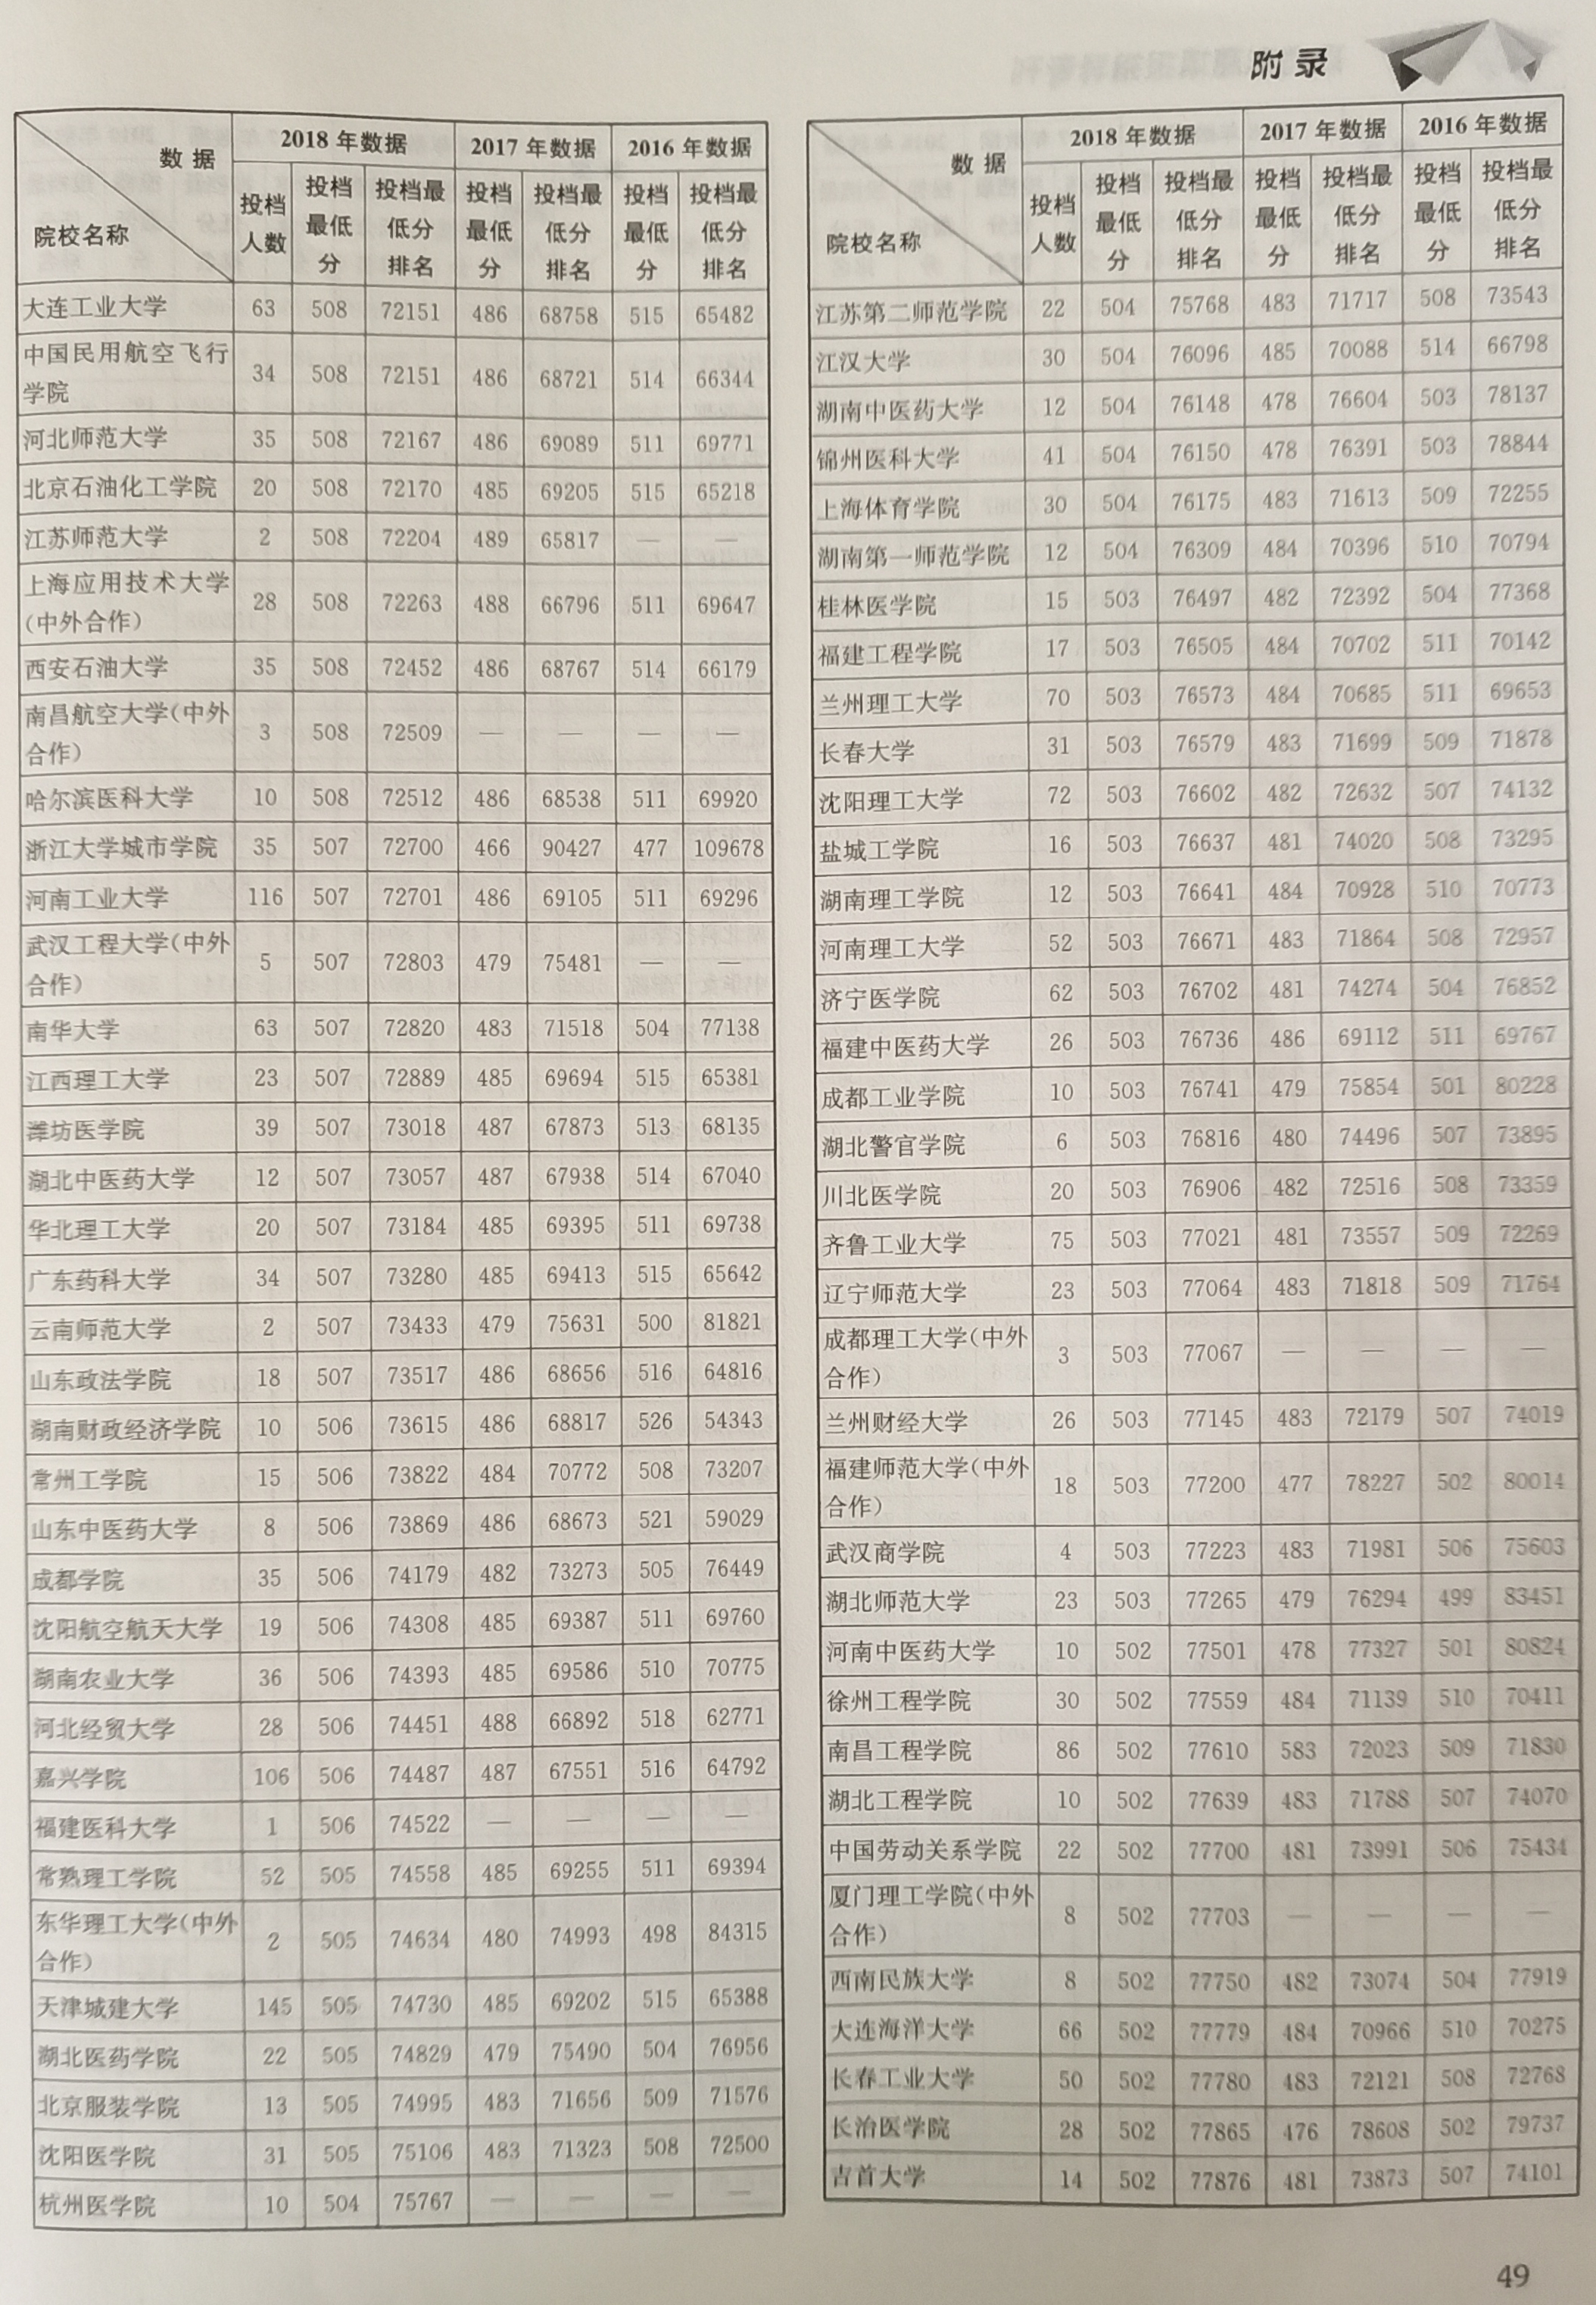 附录
数据 2018年数据 2017年数据 2016年数据
院校名称 投档人数 投档最低分 投档最低分排名 投档最低分 投档最低分排名 投档最低分 投档最低分排名
大连工业大学 63 508 72151 486 68758 515 65482
中国民用航空飞行
学院 34 508 72151 486 68721 514 66344
河北师范大学 35 508 72167 486 69089 511 69771
北京石油化工学院 20 508 72170 485 69205 515 65218
江苏师范大学 2 508 72204 489 65817 — —
上海应用技术大学
(中外合作) 28 508 72263 488 66796 511 69647
西安石油大学 35 508 72452 486 68767 514 66179
南昌航空大学(中外
合作) 3 508 72509 — — — —
哈尔滨医科大学 10 508 72512 486 68538 511 69920
浙江大学城市学院 35 507 72700 466 90427 477 109678
河南工业大学 116 507 72701 486 69105 511 69296
武汉工程大学(中外
合作) 5 507 72803 479 75481 — —
南华大学 63 507 72820 483 71518 504 77138
江西理工大学 23 507 72889 485 69694 515 65381
潍坊医学院 39 507 73018 487 67873 513 68135
湖北中医药大学 12 507 73057 487 67938 514 67040
华北理工大学 20 507 73184 485 69395 511 69738
广东药科大学 34 507 73280 485 69413 515 65642
云南师范大学 2 507 73433 479 75631 500 81821
山东政法学院 18 507 73517 486 68656 516 64816
湖南财政经济学院 10 506 73615 486 68817 526 54343
常州工学院 15 506 73822 484 70772 508 73207
山东中医药大学 8 506 73869 486 68673 521 59029
成都学院 35 506 74179 482 73273 505 76449
沈阳航空航天大学 19 506 74308 485 69387 511 69760
湖南农业大学 36 506 74393 485 69586 510 70775
河北经贸大学 28 506 74451 488 66892 518 62771
嘉兴学院 106 506 74487 487 67551 516 64792
福建医科大学 1 506 74522 — — — —
常熟理工学院 52 505 74558 485 69255 511 69394
东华理工大学(中外
合作) 2 505 74634 480 74993 498 84315
天津城建大学 145 505 74730 485 69202 515 65388
湖北医药学院 22 505 74829 479 75490 504 76956
北京服装学院 13 505 74995 483 71656 509 71576
沈阳医学院 31 505 75106 483 71323 508 72500
杭州医学院 10 504 75767 — — — —
数据 2018年数据 2017年数据 2016年数据
院校名称 投档人数 投档最低分 投档最低分排名 投档最低分 投档最低分排名 投档最低分 投档最低分排名
江苏第二师范学院 22 504 75768 483 71717 508 73543
江汉大学 30 504 76096 485 70088 514 66798
湖南中医药大学 12 504 76148 478 76604 503 78137
锦州医科大学 41 504 76150 478 76391 503 78844
上海体育学院 30 504 76175 483 71613 509 72255
湖南第一师范学院 12 504 76309 484 70396 510 70794
桂林医学院 15 503 76497 482 72392 504 77368
福建工程学院 17 503 76505 484 70702 511 70142
兰州理工大学 70 503 76573 484 70685 511 69653
长春大学 31 503 76579 483 71699 509 71878
沈阳理工大学 72 503 76602 482 72632 507 74132
盐城工学院 16 503 76637 481 74020 508 73295
湖南理工学院 12 503 76641 484 70928 510 70773
河南理工大学 52 503 76671 483 71864 508 72957
济宁医学院 62 503 76702 481 74274 504 76852
福建中医药大学 26 503 76736 486 69112 511 69767
成都工业学院 10 503 76741 479 75854 501 80228
湖北警官学院 6 503 76816 480 74496 507 73895
川北医学院 20 503 76906 482 72516 508 73359
齐鲁工业大学 75 503 77021 481 73557 509 72269
辽宁师范大学 23 503 77064 483 71818 509 71764
成都理工大学(中外
合作) 3 503 77067 — — — —
兰州财经大学 26 503 77145 483 72179 507 74019
福建师范大学(中外
合作) 18 503 77200 477 78227 502 80014
武汉商学院 4 503 77223 483 71981 506 75603
湖北师范大学 23 503 77265 479 76294 499 83451
河南中医药大学 10 502 77501 478 77327 501 80824
徐州工程学院 30 502 77559 484 71139 510 70411
南昌工程学院 86 502 77610 583 72023 509 71830
湖北工程学院 10 502 77639 483 71788 507 74070
中国劳动关系学院 22 502 77700 481 73991 506 75434
厦门理工学院(中外
合作) 8 502 77703 — — — —
西南民族大学 8 502 77750 482 73074 504 77919
大连海洋大学 66 502 77779 484 70966 510 70275
长春工业大学 50 502 77780 483 72121 508 72768
长治医学院 28 502 77865 476 78608 502 79737
吉首大学 14 502 77876 481 73873 507 74101
49